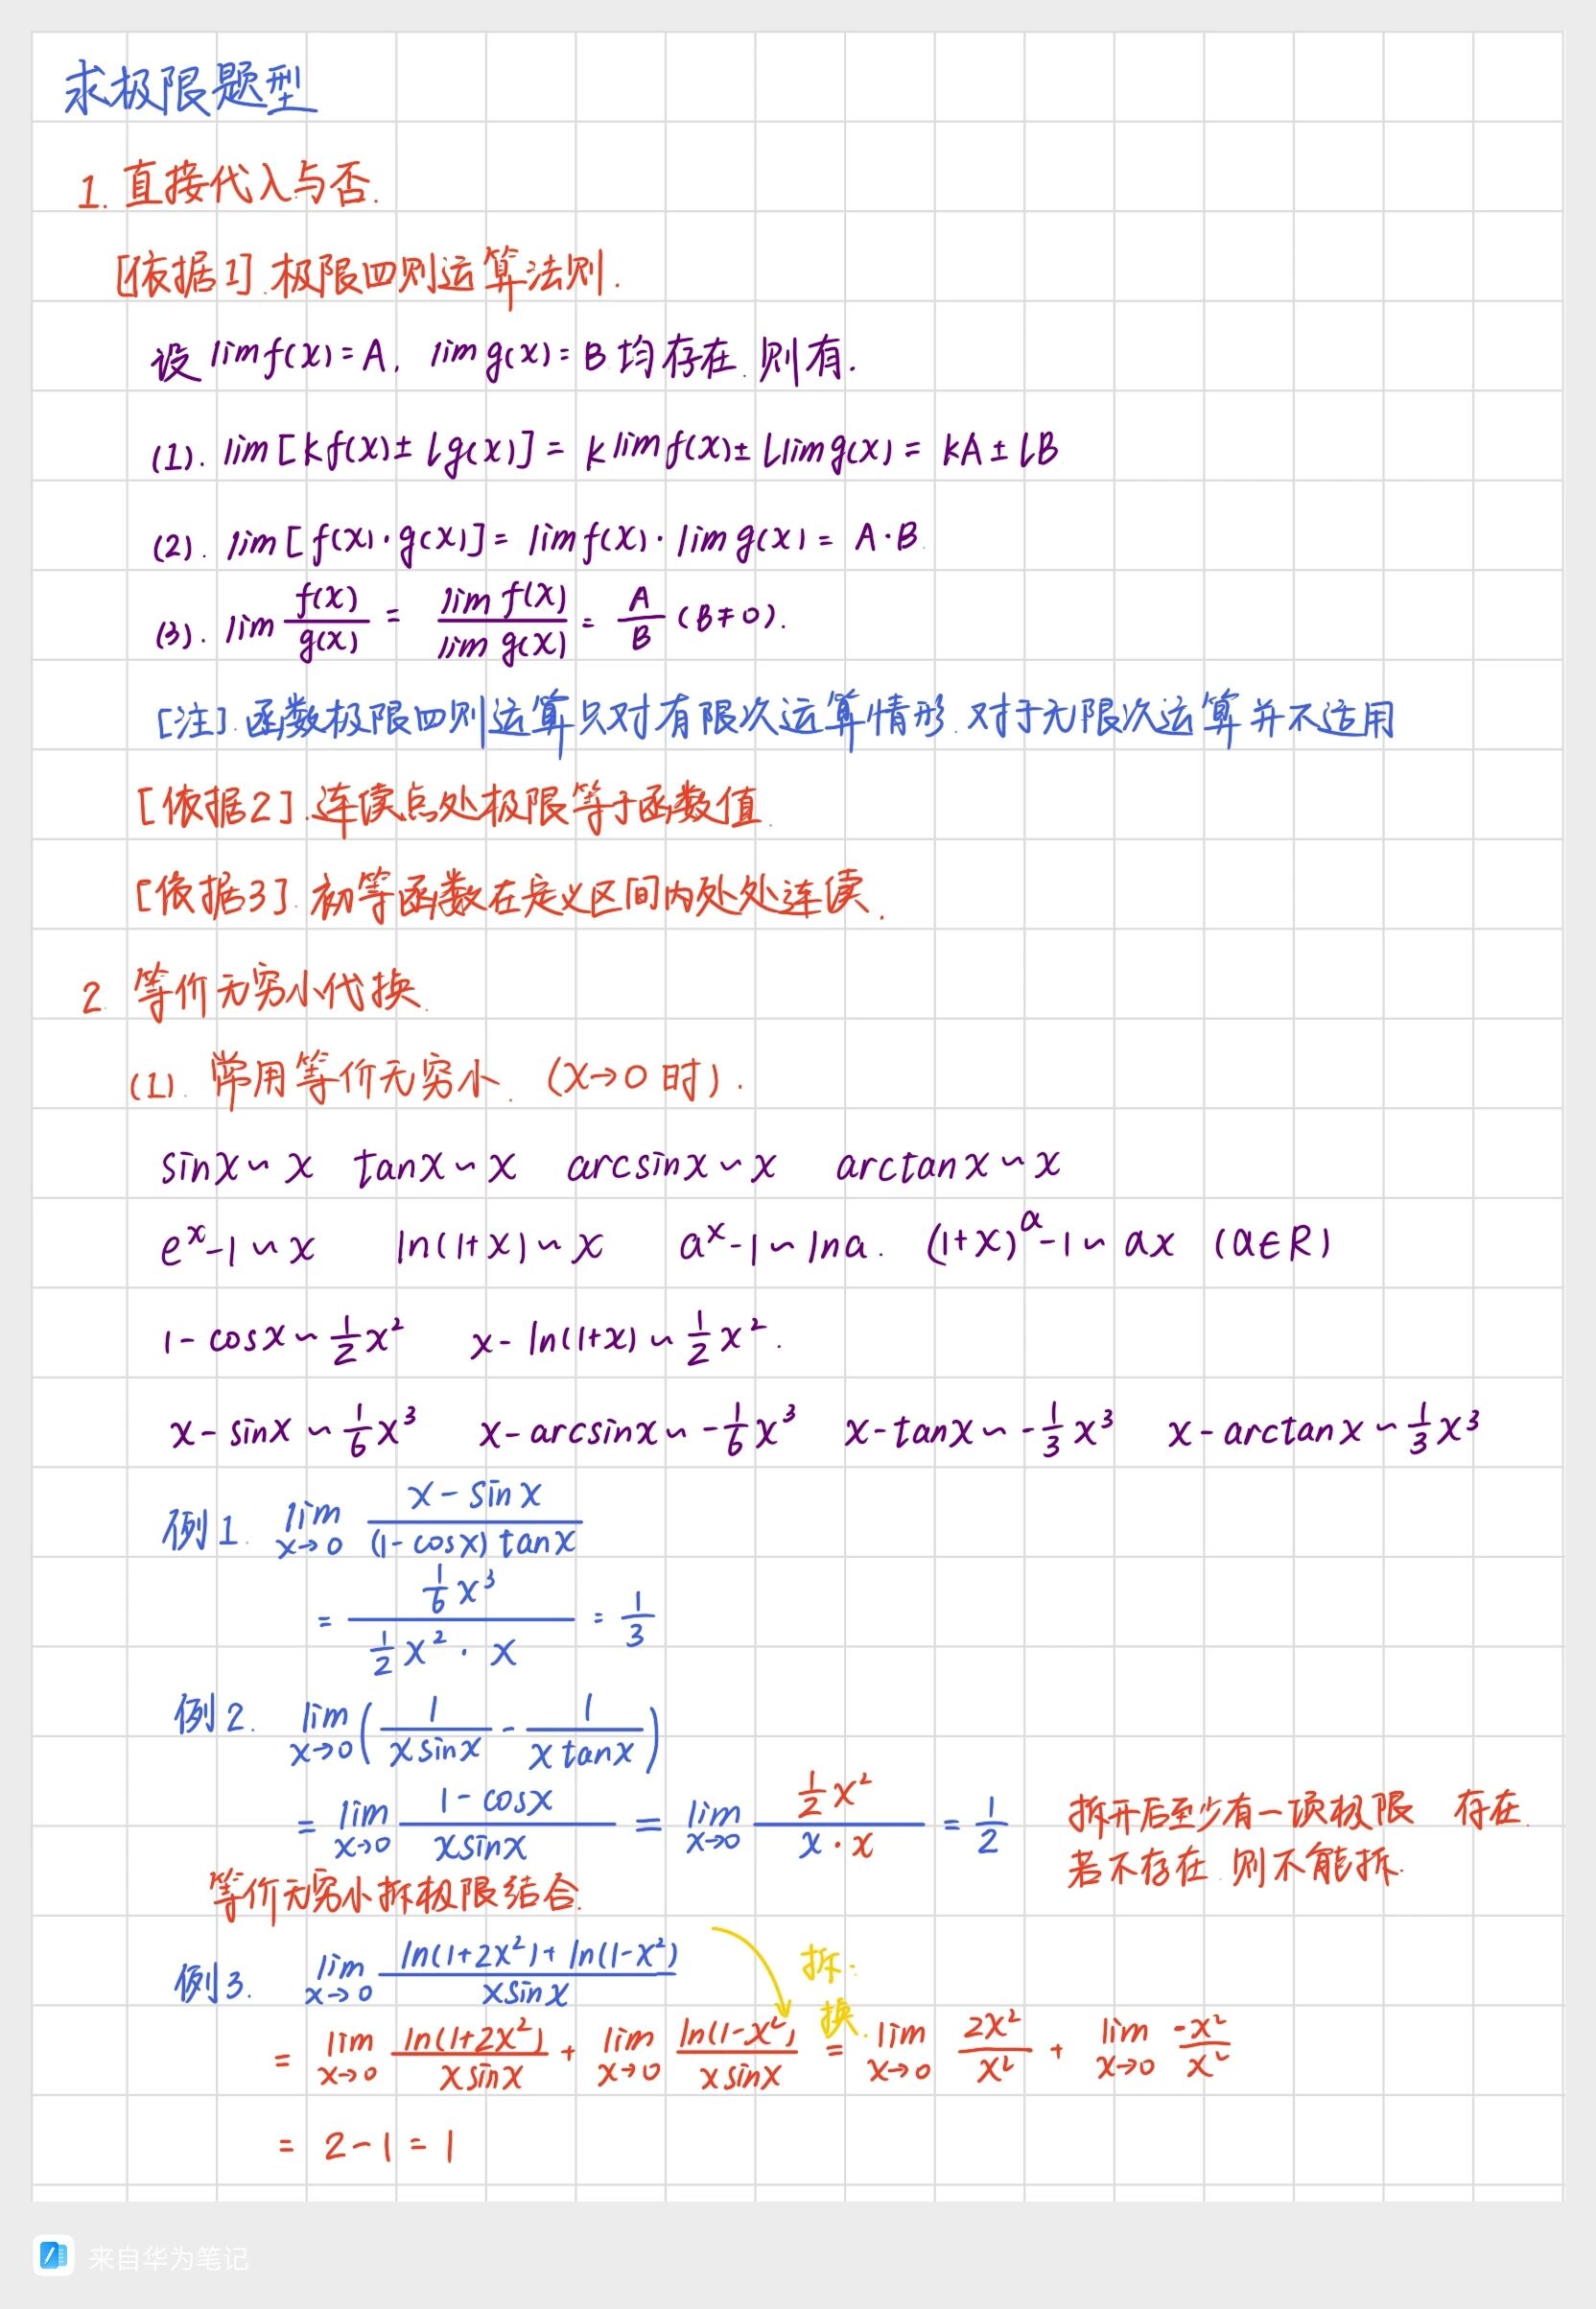 求极限题型
1. 直接代入与否.
[依据1].极限四则运算法则.
设 lim f(x) = A, lim g(x) = B 均存在.则有.
(1). lim [k f(x) ± l g(x)] = k lim f(x) ± l lim g(x) = kA ± lB
(2). lim [f(x)·g(x)] = lim f(x) · lim g(x) = A·B.
(3). lim f(x)/g(x) = lim f(x)/lim g(x) = A/B (B≠0).
[注].函数极限四则运算只对有限次运算情形.对于无限次运算并不适用
[依据2].连续点处极限等于函数值.
[依据3].初等函数在定义区间内处处连续.
2. 等价无穷小代换.
(1). 常用等价无穷小. (x→0 时).
sinx ~ x tanx ~ x arcsinx ~ x arctanx ~ x
e^x - 1 ~ x ln(1+x) ~ x a^x - 1 ~ lna. (1+x)^α - 1 ~ αx (α∈R)
1 - cosx ~ 1/2 x² x - ln(1+x) ~ 1/2 x².
x - sinx ~ 1/6 x³ x - arcsinx ~ -1/6 x³ x - tanx ~ -1/3 x³ x - arctanx ~ 1/3 x³
例1. lim x→0 (x - sinx)/((1 - cosx) tanx)
= (1/6 x³)/(1/2 x² · x) = 1/3
例2. lim x→0 (1/(x sinx) - 1/(x tanx))
= lim x→0 (1 - cosx)/(x sinx) = lim x→0 (1/2 x²)/(x · x) = 1/2
拆开后至少有一项极限 存在.
若不存在.则不能拆.
等价无穷小拆极限结合.
例3. lim x→0 (ln(1+2x²) + ln(1-x²))/(x sinx)
拆.
换.
= lim x→0 ln(1+2x²)/(x sinx) + lim x→0 ln(1-x²)/(x sinx) = lim x→0 2x²/x² + lim x→0 -x²/x²
= 2 - 1 = 1
来自华为笔记